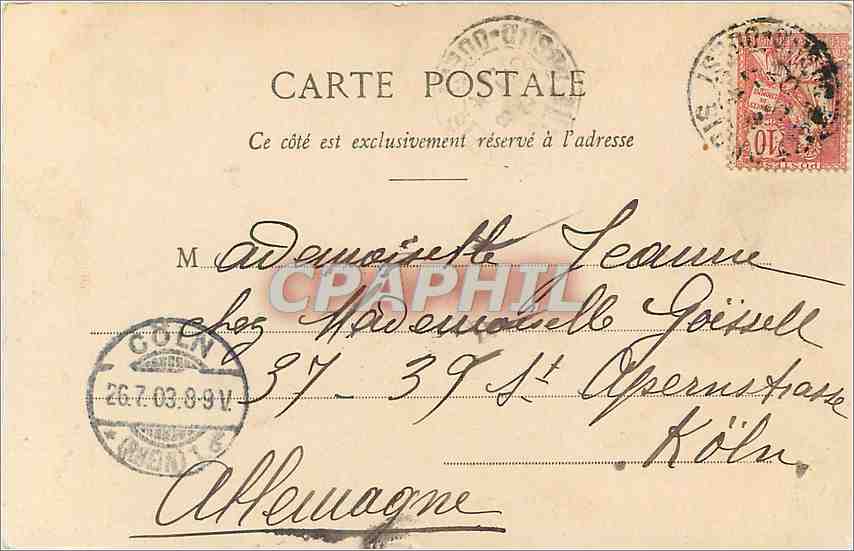 CARTE POSTALE
Ce côté est exclusivement réservé à l'adresse
Mademoiselle Jeanne
CPAPHIL
chez Mademoiselle Goïssell
37 - 39 St Apernstrasse
Köln.
Allemagne
CÖLN
26.7.03.8-9 V.
10
POSTES